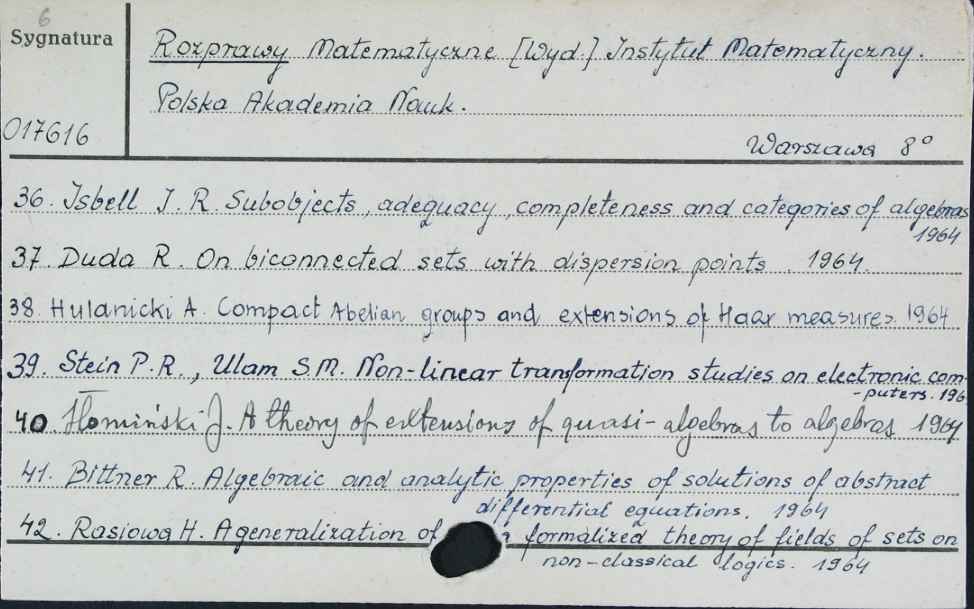 6
Sygnatura
Rozprawy Matematyczne [Wyd.] Instytut Matematyczny.
Polska Akademia Nauk.
017616
Warszawa 8°
36. Isbell J. R. Subobjects, adequacy, completeness and categories of algebras
1964
37. Duda R. On biconnected sets with dispersion points. 1964.
38. Hulanicki A. Compact Abelian groups and extensions of Haar measures. 1964
39. Stein P.R., Ulam S.M. Non-linear transformation studies on electronic com-
-puters. 196
40. Słomiński J. A theory of extensions of quasi-algebras to algebras 1964
41. Bittner R. Algebraic and analytic properties of solutions of abstract
differential equations. 1964
42. Rasiowa H. A generalization of formalized theory of fields of sets on
non-classical logics. 1964